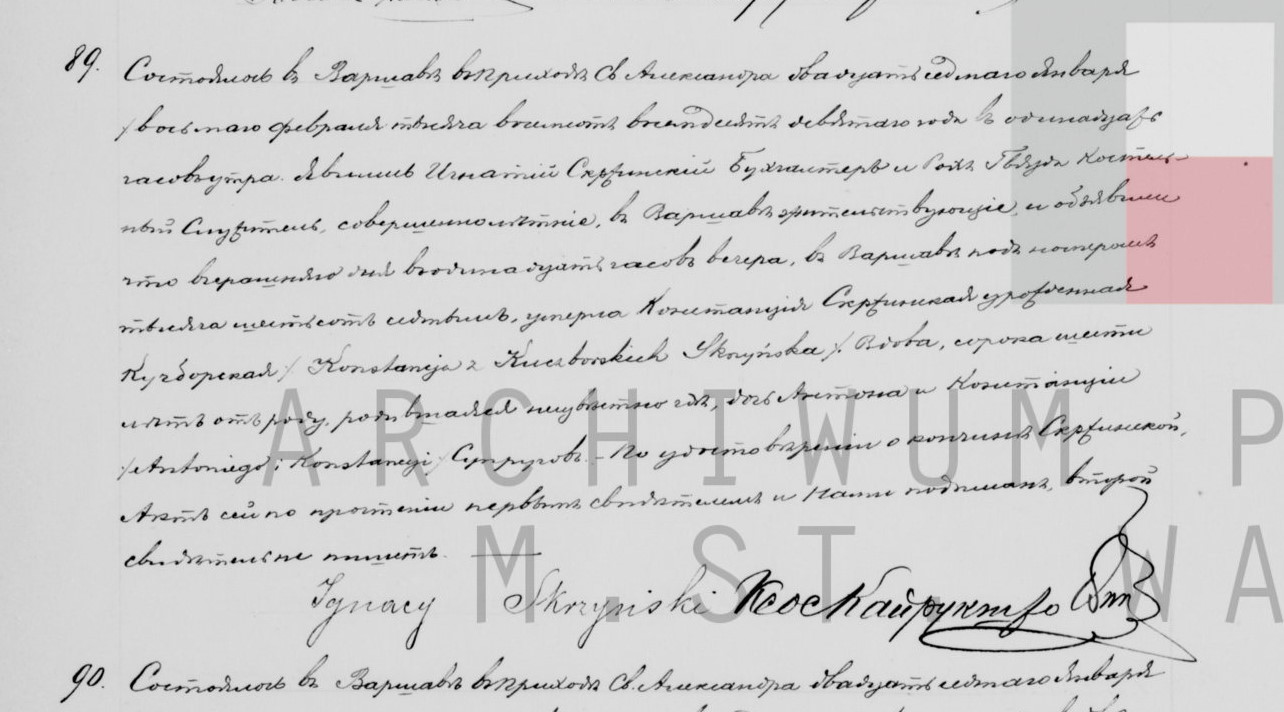 89. Состоялось въ Варшавѣ въ приходѣ Св. Александра двадцать седьмаго Января
/восьмаго февраля тысяча восемьсотъ восемдесятъ девятаго года въ одинадцать
часовъ утра. Явились Игнатій Скржинскій Бухгалтеръ и Рохъ Гвязда Костель-
ный Служитель, совершеннолѣтніе, въ Варшавѣ жительствующіе, и объявили
что вчерашняго дня въ одинадцать часовъ вечера, въ Варшавѣ подъ номеромъ
тысяча шестьсотъ седьмымъ, умерла Констанція Скржинская урожденная
Кучборская / Konstancja z Kuczborskich Skrzyńska /. Вдова, сорока шести
лѣтъ отъ роду, родившаяся неизвѣстно гдѣ, дочь Антона и Констанціи
/Antoniego i Konstancyi/ Супруговъ. - По удостовѣреніи о кончинѣ Скржинской,
Актъ сей по прочтеніи первымъ свидѣтелемъ и Нами подписанъ, второй
свидѣтель не пишетъ.
Ignacy Skrzyński Ксо
90. Состоялось въ Варшавѣ въ приходѣ Св. Александра двадцать седьмаго Января
ARCHIWUM P
M.ST. WA